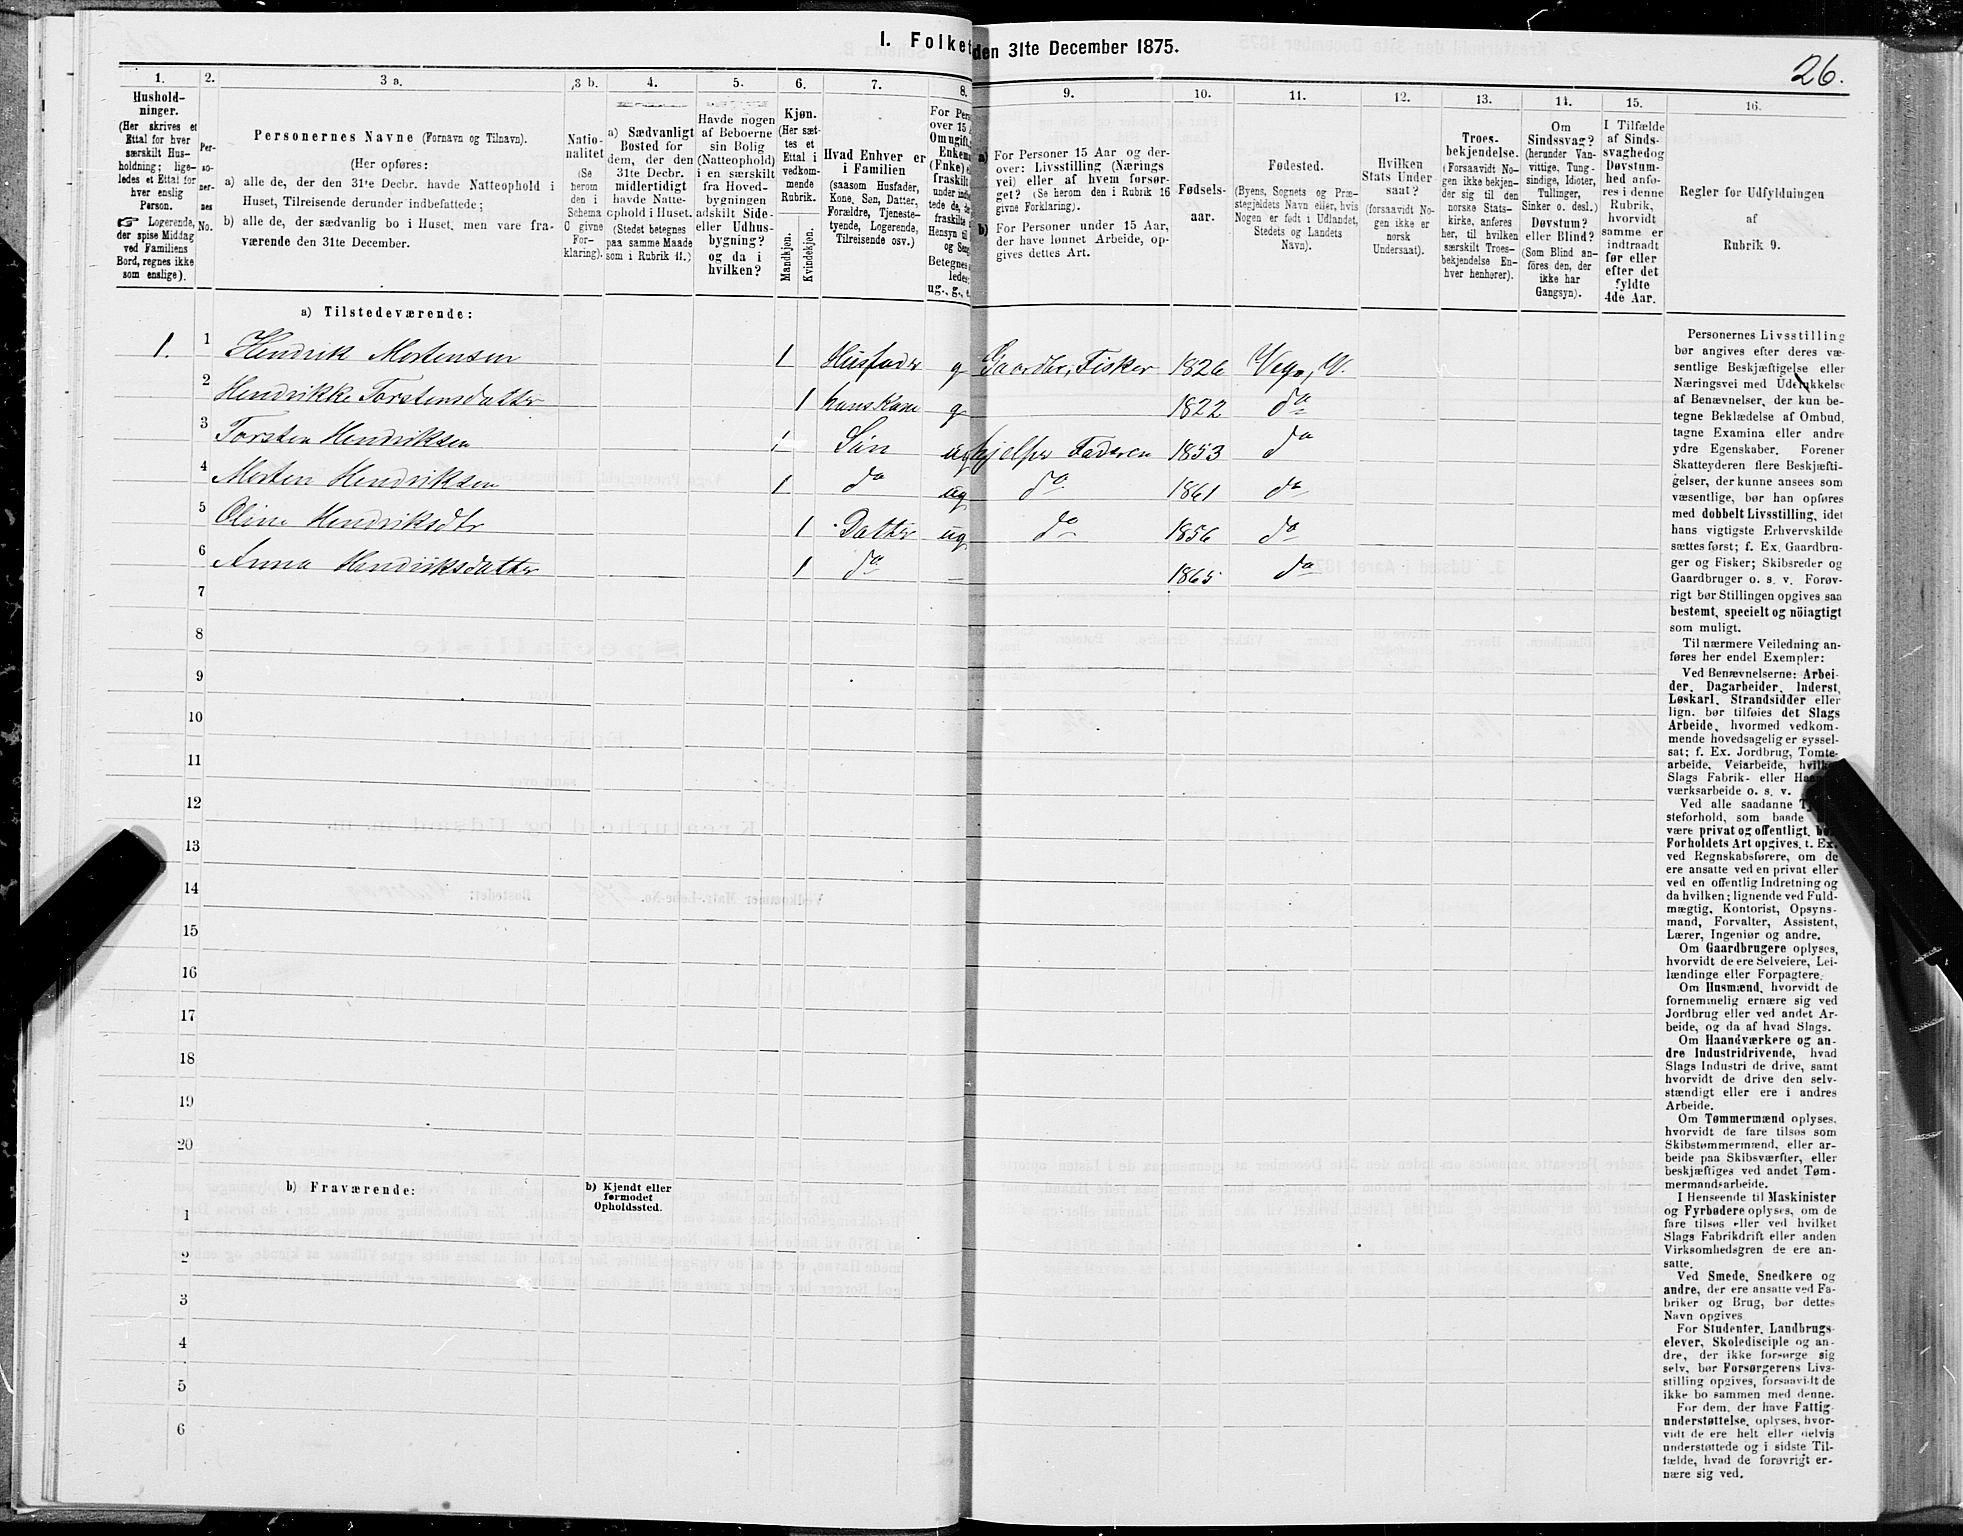 I. Folket den 31te December 1875.
26.
1. 2. 3 a. 3 b. 4. 5. 6. 7. 8. 9. 10. 11. 12. 13. 14. 15. 16.
Hushold-
ninger.
(Her skrives et
Ettal for hver
særskilt Hus-
holdning; lige-
ledes et Ettal for
hver enslig
Person.
☞ Logerende,
der spise Middag
ved Familiens
Bord, regnes ikke
som enslige).
Per-
so-
ner-
nes
No.
Personernes Navne (Fornavn og Tilnavn).
(Her opføres:
a) alle de, der den 31te Decbr. havde Natteophold i
Huset, Tilreisende derunder indbefattede;
b) alle de, der sædvanlig bo i Huset, men vare fra-
værende den 31te December.
Natio-
nalitet
(Se
herom
den i
Schema
C givne
For-
klaring).
a) Sædvanligt
Bosted for
dem, der den
31te Decbr.
midlertidigt
havde Natte-
ophold i Huset.
(Stedet betegnes
paa samme Maade
som i Rubrik 11.)
Havde nogen
af Beboerne
sin Bolig
(Natteophold)
i en særskilt
fra Hoved-
bygningen
adskilt Side-
eller Udhus-
bygning?
og da i
hvilken?
Kjøn.
(Her sæt-
tes et
Ettal i
vedkom-
mende
Rubrik.
Mandkjøn.
Kvindekjøn.
Hvad Enhver er
i Familien
(saasom Husfader,
Kone, Søn, Datter,
Forældre, Tjeneste-
tyende, Logerende,
Tilreisende osv.)
For Pers
over 15 A
Omugift,
Enkema
(Enke) e
fraskilt
under indb
tede de, de
fraskilte
Hensyn til
og Sen
Betegnes
ledes:
ug., g., e.
a) For Personer 15 Aar og der-
over: Livsstilling (Nærings
vei) eller af hvem forsør-
get? (Se herom den i Rubrik 16
givne Forklaring).
b) For Personer under 15 Aar,
der have lønnet Arbeide, op-
gives dettes Art.
Fødsels-
aar.
Fødested.
(Byens, Sognets og Præ-
stegjeldets Navn eller, hvis
Nogen er født i Udlandet,
Stedets og Landets
Navn).
Hvilken
Stats Under
saat?
(forsaavidt No-
gen ikke er
norsk
Undersaat).
Troes-
bekjendelse.
(Forsaavidt No-
gen ikke bekjen-
der sig til den
norske Stats-
kirke, anføres
her, til hvilken
særskilt Troes-
bekjendelse En-
hver henhører).
Om
Sindssvag?
(herunder Van-
vittige, Tung-
sindige, Idioter,
Tullinger,
Sinker o. desl.)
Døvstum?
eller Blind?
(Som Blind an-
føres den, der
ikke har
Gangsyn).
I Tilfælde
af Sinds-
svaghed og
Døvstum-
hed anfø-
res i denne
Rubrik,
hvorvidt
samme er
indtraadt
før eller
efter det
fyldte
4de Aar.
Regler for Udfyldningen
af
Rubrik 9.
a) Tilstedeværende:
1. 1 Hendrik Mortensen 1 Husfader g Gaardbr, Fisker 1826 Vegø, V.
2 Hendrikke Torstensdatter 1 hans Kone g 1822 do
3 Torsten Hendriksen 1 Søn ug hjelper Faderen 1853 do
4 Morten Hendriksen 1 do ug do 1861 do
5 Oline Hendriksdtr 1 Datter ug do 1856 do
6 Anna Hendriksdatter 1 do – 1865 do
7
8
9
10
11
12
13
14
15
16
17
18
19
20
b) Fraværende:
b) Kjendt eller
formodet
Opholdssted.
1
2
3
4
5
6
Personernes Livsstilling
bør angives efter deres væ-
sentlige Beskjæftigelse eller
Næringsvei med Udelukkelse
af Benævnelser, der kun be-
tegne Beklædelse af Ombud,
tagne Examina eller andre
ydre Egenskaber. Forener
Skatteyderen flere Beskjæfti-
gelser, der kunne ansees som
væsentlige, bør han opføres
med dobbelt Livsstilling, idet
hans vigtigste Erhvervskilde
sættes først; f. Ex. Gaardbru-
ger og Fisker; Skibsreder og
Gaardbruger o. s. v. Forøv-
rigt bør Stillingen opgives saa
bestemt, specielt og nöiagtigt
som muligt.
Til nærmere Veiledning an-
føres her endel Exempler:
Ved Benævnelserne: Arbei-
der, Dagarbeider, Inderst,
Løskarl, Strandsidder eller
lign. bør tilføies det Slags
Arbeide, hvormed vedkom-
mende hovedsagelig er syssel-
sat; f. Ex. Jordbrug, Tomte-
arbeide, Veiarbeide, hvilket
Slags Fabrik- eller Haand-
værksarbeide o. s. v.
Ved alle saadanne Tje-
steforhold, som baade
være privat og offentligt, bør
Forholdets Art opgives, t. Ex.
ved Regnskabsførere, om de
ere ansatte ved en privat eller
ved en offentlig Indretning og
da hvilken; lignende ved Fuld-
mægtig, Kontorist, Opsyns-
mand, Forvalter, Assistent,
Lærer, Ingeniør og andre.
Om Gaardbrugere oplyses,
hvorvidt de ere Selveiere, Lei-
lændinge eller Forpagtere.
Om Husmænd, hvorvidt de
fornemmelig ernære sig ved
Jordbrug eller ved andet Ar-
beide, og da af hvad Slags.
Om Haandværkere og an-
dre Industridrivende, hvad
Slags Industri de drive, samt
hvorvidt de drive den selv-
stændigt eller ere i andres
Arbeide.
Om Tømmermænd oplyses,
hvorvidt de fare tilsøs som
Skibstømmermænd, eller ar-
beide paa Skibsværfter, eller
beskjæftiges ved andet Tøm-
mermandsarbeide.
I Henseende til Maskinister
og Fyrbødere oplyses, om de
fare tilsøs eller ved hvilket
Slags Fabrikdrift eller anden
Virksomhedsgren de ere an-
satte.
Ved Smede, Snedkere og
andre, der ere ansatte ved Fa-
briker og Brug, bør dettes
Navn opgives
For Studenter, Landbrugs-
elever, Skoledisciple og an-
dre, der ikke forsørge sig
selv, bør Forsørgerens Livs-
stilling opgives, forsaavidt de
ikke bo sammen med denne.
For dem, der have Fattig-
understøttelse, oplyses, hvor-
vidt de ere helt eller delvis
understøttede og i sidste Til-
fælde, hvad de forøvrigt er-
nære sig ved.